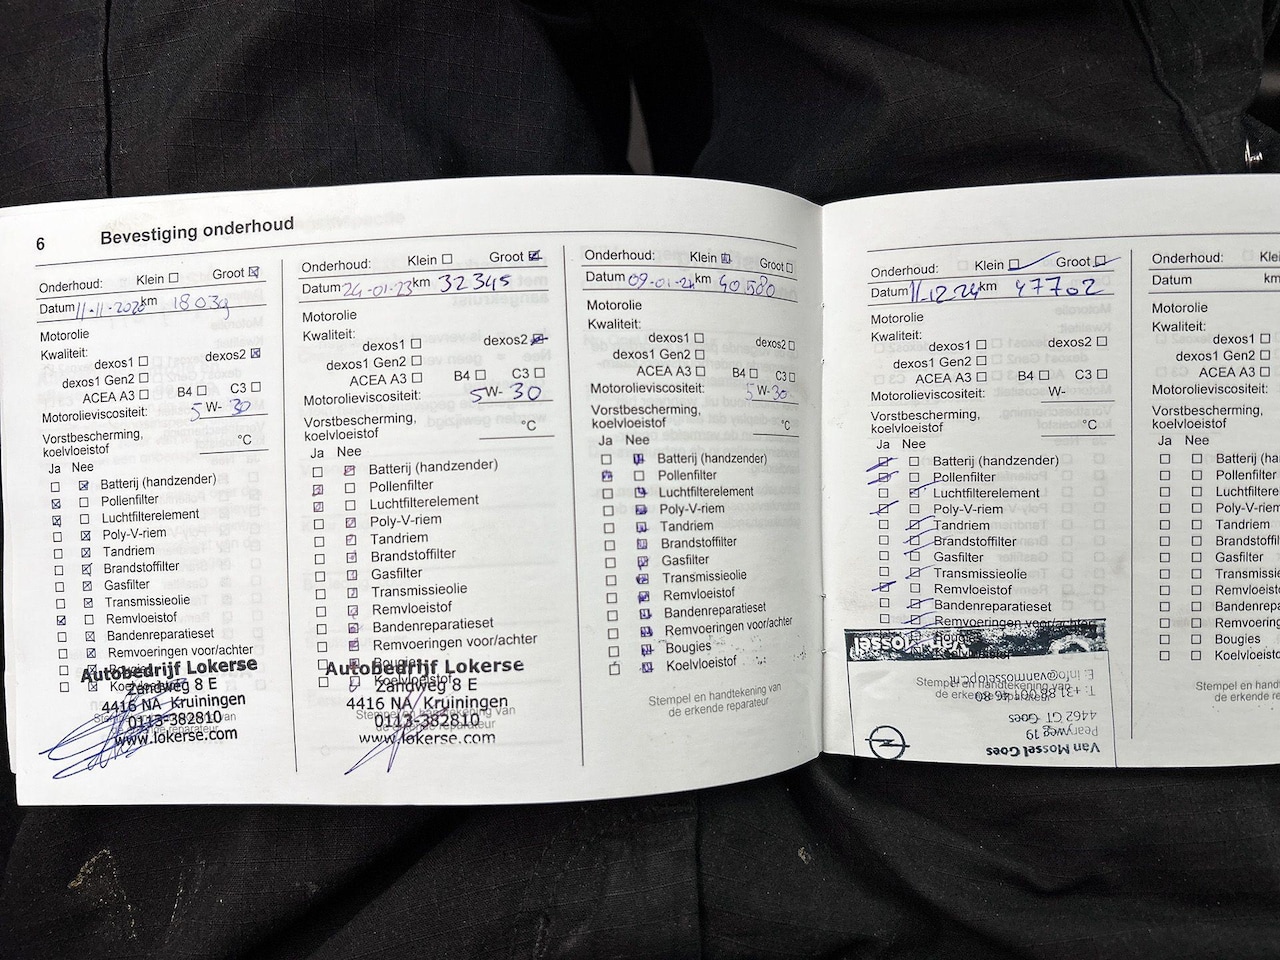 6 Bevestiging onderhoud
Onderhoud: Klein Groot
Datum 11-11-2020 km 18039
Motorolie
Kwaliteit:
dexos1 dexos2
dexos1 Gen2
ACEA A3 B4 C3
Motorolieviscositeit: 5 W- 30
Vorstbescherming,
koelvloeistof °C
Ja Nee
Batterij (handzender)
Pollenfilter
Luchtfilterelement
Poly-V-riem
Tandriem
Brandstoffilter
Gasfilter
Transmissieolie
Remvloeistof
Bandenreparatieset
Remvoeringen voor/achter
Bougies
Koelvloeistof
Autobedrijf Lokerse
Zandweg 8 E
4416 NA Kruiningen
0113-382810
www.lokerse.com
Onderhoud: Klein Groot
Datum 24-01-23 km 32345
Motorolie
Kwaliteit:
dexos1 dexos2
dexos1 Gen2
ACEA A3 B4 C3
Motorolieviscositeit: 5W- 30
Vorstbescherming,
koelvloeistof °C
Ja Nee
Batterij (handzender)
Pollenfilter
Luchtfilterelement
Poly-V-riem
Tandriem
Brandstoffilter
Gasfilter
Transmissieolie
Remvloeistof
Bandenreparatieset
Remvoeringen voor/achter
Bougies
Koelvloeistof
Autobedrijf Lokerse
Zandweg 8 E
4416 NA Kruiningen
Stempel en handtekening van
0113-382810
de erkende reparateur
www.lokerse.com
Onderhoud: Klein Groot
Datum 09-01-24 km 40580
Motorolie
Kwaliteit:
dexos1 dexos2
dexos1 Gen2
ACEA A3 B4 C3
Motorolieviscositeit: 5W-30
Vorstbescherming,
koelvloeistof °C
Ja Nee
Batterij (handzender)
Pollenfilter
Luchtfilterelement
Poly-V-riem
Tandriem
Brandstoffilter
Gasfilter
Transmissieolie
Remvloeistof
Bandenreparatieset
Remvoeringen voor/achter
Bougies
Koelvloeistof
Stempel en handtekening van
de erkende reparateur
Onderhoud: Klein Groot
Datum 11.12.24 km 47702
Motorolie
Kwaliteit:
dexos1 dexos2
dexos1 Gen2
ACEA A3 B4 C3
Motorolieviscositeit: W-
Vorstbescherming,
koelvloeistof °C
Ja Nee
Batterij (handzender)
Pollenfilter
Luchtfilterelement
Poly-V-riem
Tandriem
Brandstoffilter
Gasfilter
Transmissieolie
Remvloeistof
Bandenreparatieset
Remvoeringen voor/achter
Bougies
Koelvloeistof
Stempel en handtekening van
de erkende reparateur
Van Mossel Goes
Pearyweg 19
4462 GT Goes
Onderhoud: Klein
Datum km
Motorolie
Kwaliteit:
dexos1
dexos1 Gen2
ACEA A3
Motorolieviscositeit:
Vorstbescherming,
koelvloeistof
Ja Nee
Batterij (hand
Pollenfilter
Luchtfilterele
Poly-V-riem
Tandriem
Brandstoffilt
Gasfilter
Transmissie
Remvloeisto
Bandenrepa
Remvoering
Bougies
Koelvloeisto
Stempel en hand
de erkende